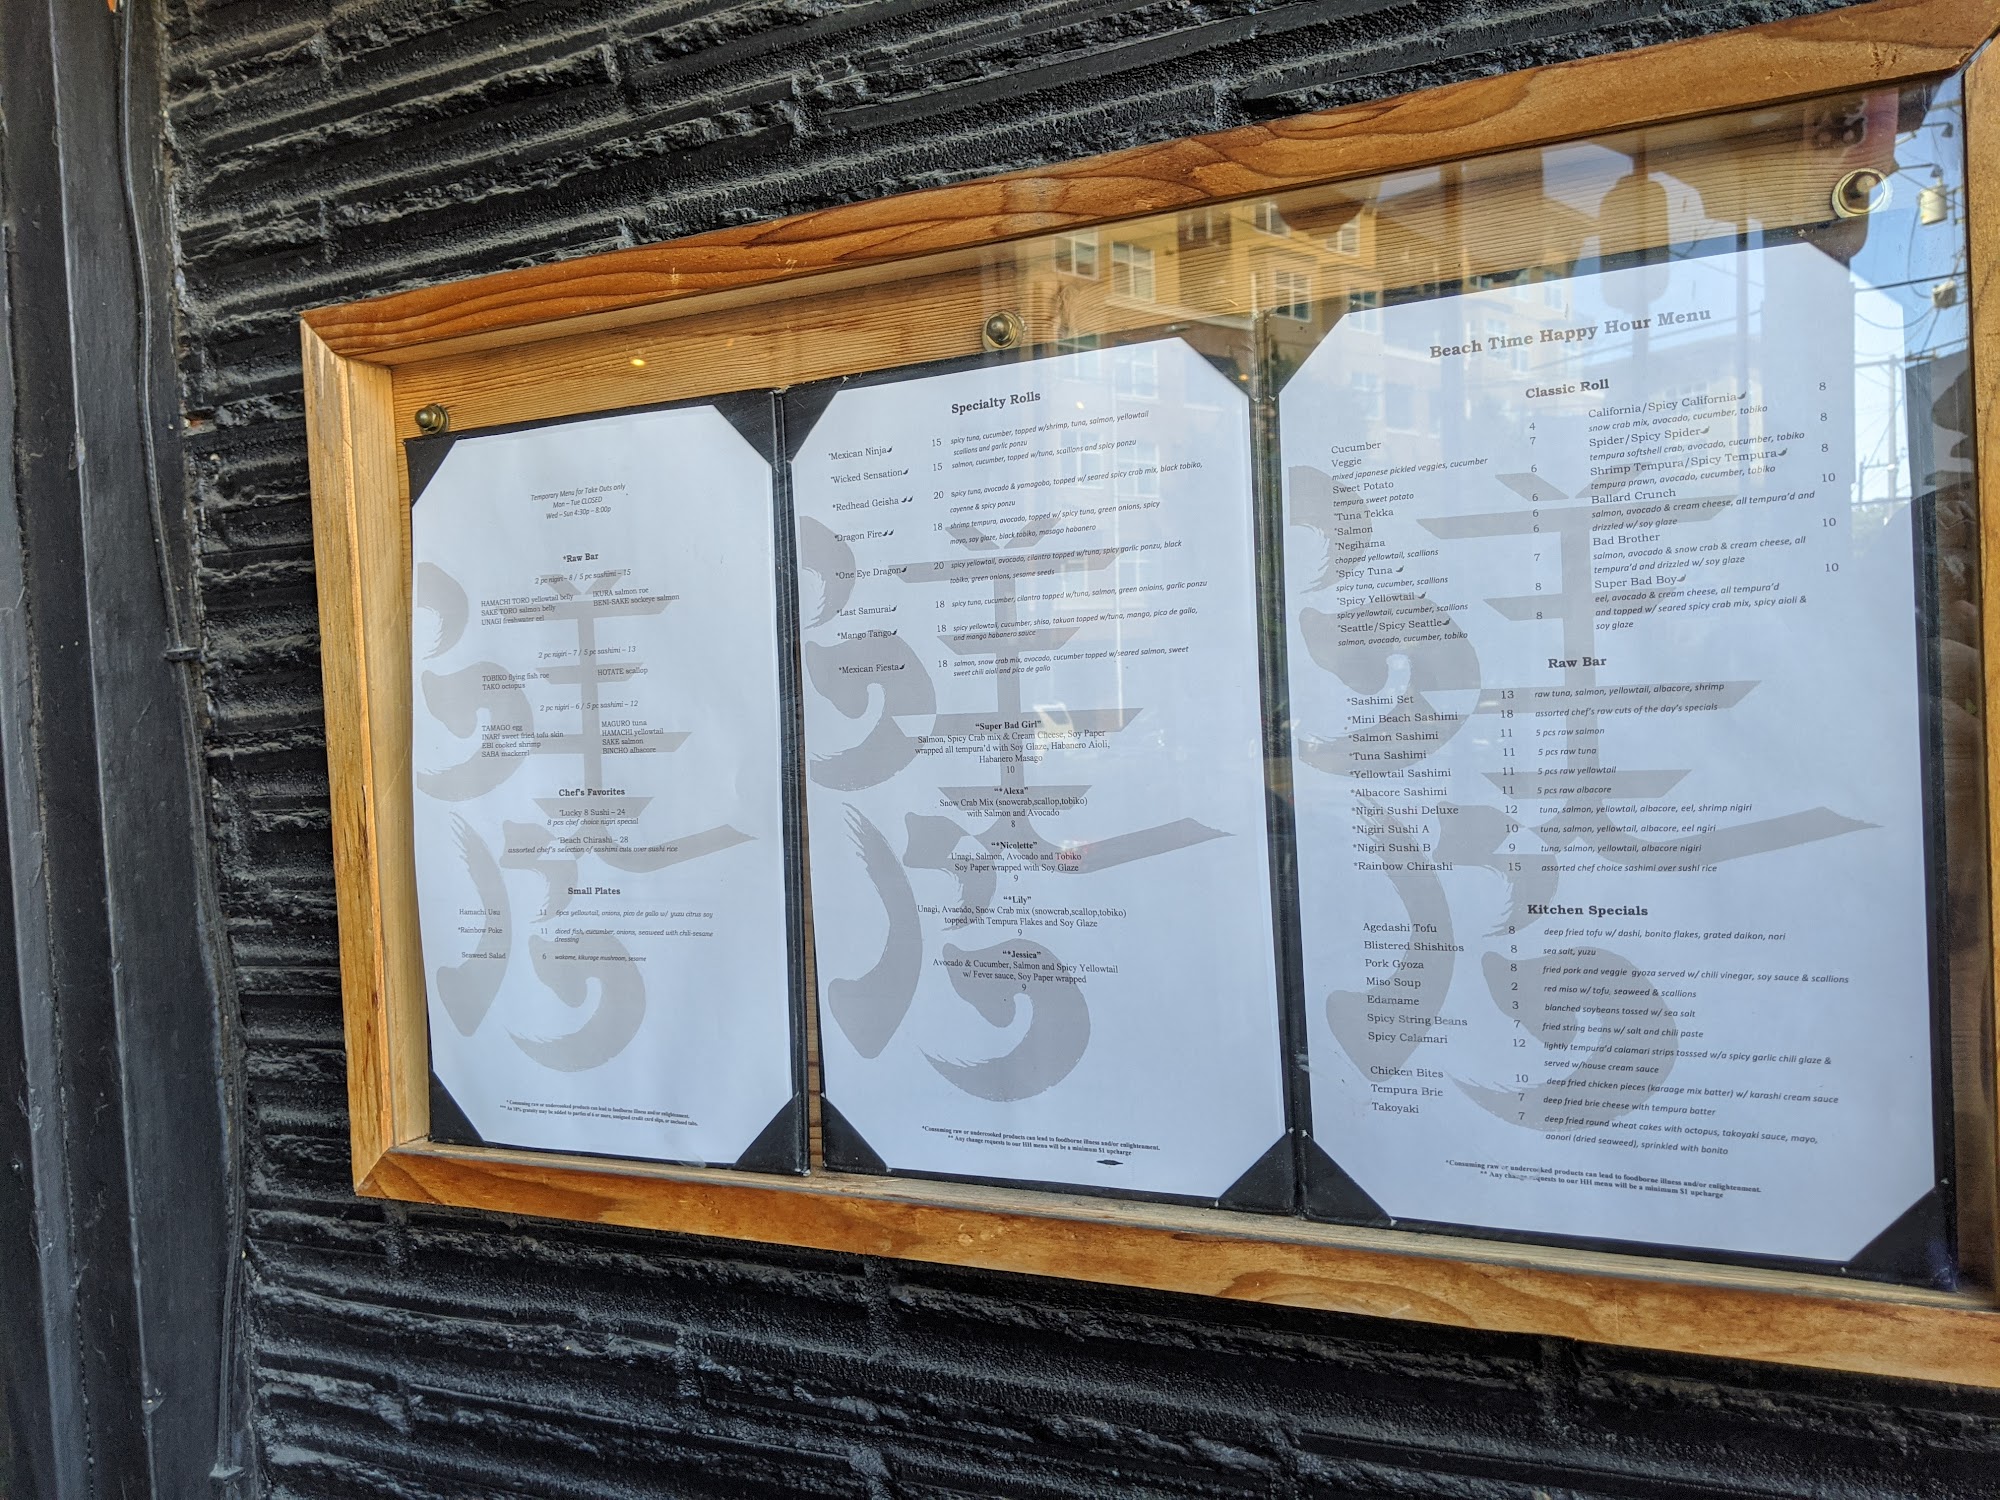 Temporary Menu for Take Outs only
Mon – Tue CLOSED
Wed – Sun 4:30p – 8:00p
*Raw Bar
2 pc nigiri – 8 / 5 pc sashimi – 15
HAMACHI TORO yellowtail belly IKURA salmon roe
SAKE TORO salmon belly BENI-SAKE sockeye salmon
UNAGI freshwater eel
2 pc nigiri – 7 / 5 pc sashimi – 13
TOBIKO flying fish roe HOTATE scallop
TAKO octopus
2 pc nigiri – 6 / 5 pc sashimi – 12
TAMAGO egg MAGURO tuna
INARI sweet fried tofu skin HAMACHI yellowtail
EBI cooked shrimp SAKE salmon
SABA mackerel BINCHO albacore
Chef's Favorites
*Lucky 8 Sushi – 24
8 pcs chef choice nigiri special
*Beach Chirashi – 28
assorted chef's selection of sashimi cuts over sushi rice
Small Plates
Hamachi Usu 11 6pcs yellowtail, onions, pico de gallo w/ yuzu citrus soy
*Rainbow Poke 11 diced fish, cucumber, onions, seaweed with chili-sesame
dressing
Seaweed Salad 6 wakame, kikurage mushroom, sesame
* Consuming raw or undercooked products can lead to foodborne illness and/or enlightenment.
*** An 18% gratuity may be added to parties of 6 or more, unsigned credit card slips, or unclosed tabs.
Specialty Rolls
*Mexican Ninja 15 spicy tuna, cucumber, topped w/shrimp, tuna, salmon, yellowtail
scallions and garlic ponzu
*Wicked Sensation 15 salmon, cucumber, topped w/tuna, scallions and spicy ponzu
*Redhead Geisha 20 spicy tuna, avocado & yamagobo, topped w/ seared spicy crab mix, black tobiko,
cayenne & spicy ponzu
*Dragon Fire 18 shrimp tempura, avocado, topped w/ spicy tuna, green onions, spicy
mayo, soy glaze, black tobiko, masago habanero
*One Eye Dragon 20 spicy yellowtail, avocado, cilantro topped w/tuna, spicy garlic ponzu, black
tobiko, green onions, sesame seeds
*Last Samurai 18 spicy tuna, cucumber, cilantro topped w/tuna, salmon, green onioins, garlic ponzu
*Mango Tango 18 spicy yellowtail, cucumber, shiso, takuan topped w/tuna, mango, pico de gallo,
and mango habanero sauce
*Mexican Fiesta 18 salmon, snow crab mix, avocado, cucumber topped w/seared salmon, sweet
sweet chili aioli and pico de gallo
"Super Bad Girl"
Salmon, Spicy Crab mix & Cream Cheese, Soy Paper
wrapped all tempura'd with Soy Glaze, Habanero Aioli,
Habanero Masago
10
"*Alexa"
Snow Crab Mix (snowcrab,scallop,tobiko)
with Salmon and Avocado
8
"*Nicolette"
Unagi, Salmon, Avocado and Tobiko
Soy Paper wrapped with Soy Glaze
9
"*Lily"
Unagi, Avacado, Snow Crab mix (snowcrab,scallop,tobiko)
topped with Tempura Flakes and Soy Glaze
9
"*Jessica"
Avocado & Cucumber, Salmon and Spicy Yellowtail
w/ Fever sauce, Soy Paper wrapped
9
*Consuming raw or undercooked products can lead to foodborne illness and/or enlightenment.
** Any change requests to our HH menu will be a minimum $1 upcharge
Beach Time Happy Hour Menu
Classic Roll
Cucumber 4
Veggie 7
mixed japanese pickled veggies, cucumber
Sweet Potato 6
tempura sweet potato
*Tuna Tekka 6
*Salmon 6
*Negihama 6
chopped yellowtail, scallions
*Spicy Tuna 7
spicy tuna, cucumber, scallions
*Spicy Yellowtail 8
spicy yellowtail, cucumber, scallions
*Seattle/Spicy Seattle 8
salmon, avocado, cucumber, tobiko
California/Spicy California 8
snow crab mix, avocado, cucumber, tobiko
Spider/Spicy Spider 8
tempura softshell crab, avocado, cucumber, tobiko
Shrimp Tempura/Spicy Tempura 8
tempura prawn, avocado, cucumber, tobiko
Ballard Crunch 10
salmon, avocado & cream cheese, all tempura'd and
drizzled w/ soy glaze
Bad Brother 10
salmon, avocado & snow crab & cream cheese, all
tempura'd and drizzled w/ soy glaze
Super Bad Boy 10
eel, avocado & cream cheese, all tempura'd
and topped w/ seared spicy crab mix, spicy aioli &
soy glaze
Raw Bar
*Sashimi Set 13 raw tuna, salmon, yellowtail, albacare, shrimp
*Mini Beach Sashimi 18 assorted chef's raw cuts of the day's specials
*Salmon Sashimi 11 5 pcs raw salmon
*Tuna Sashimi 11 5 pcs raw tuna
*Yellowtail Sashimi 11 5 pcs raw yellowtail
*Albacore Sashimi 11 5 pcs raw albacore
*Nigiri Sushi Deluxe 12 tuna, salmon, yellowtail, albacore, eel, shrimp nigiri
*Nigiri Sushi A 10 tuna, salmon, yellowtail, albacore, eel ngiri
*Nigiri Sushi B 9 tuna, salmon, yellowtail, albacore nigiri
*Rainbow Chirashi 15 assorted chef choice sashimi over sushi rice
Kitchen Specials
Agedashi Tofu 8 deep fried tofu w/ dashi, bonito flakes, grated daikon, nori
Blistered Shishitos 8 sea salt, yuzu
Pork Gyoza 8 fried pork and veggie gyoza served w/ chili vinegar, soy sauce & scallions
Miso Soup 2 red miso w/ tofu, seaweed & scallions
Edamame 3 blanched soybeans tossed w/ sea salt
Spicy String Beans 7 fried string beans w/ salt and chili paste
Spicy Calamari 12 lightly tempura'd calamari strips tosssed w/a spicy garlic chili glaze &
served w/house cream sauce
Chicken Bites 10 deep fried chicken pieces (karaage mix batter) w/ karashi cream sauce
Tempura Brie 7 deep fried brie cheese with tempura batter
Takoyaki 7 deep fried round wheat cakes with octopus, takoyaki sauce, mayo,
aonori (dried seaweed), sprinkled with bonito
*Consuming raw or undercooked products can lead to foodborne illness and/or enlightenment.
** Any change requests to our HH menu will be a minimum $1 upcharge